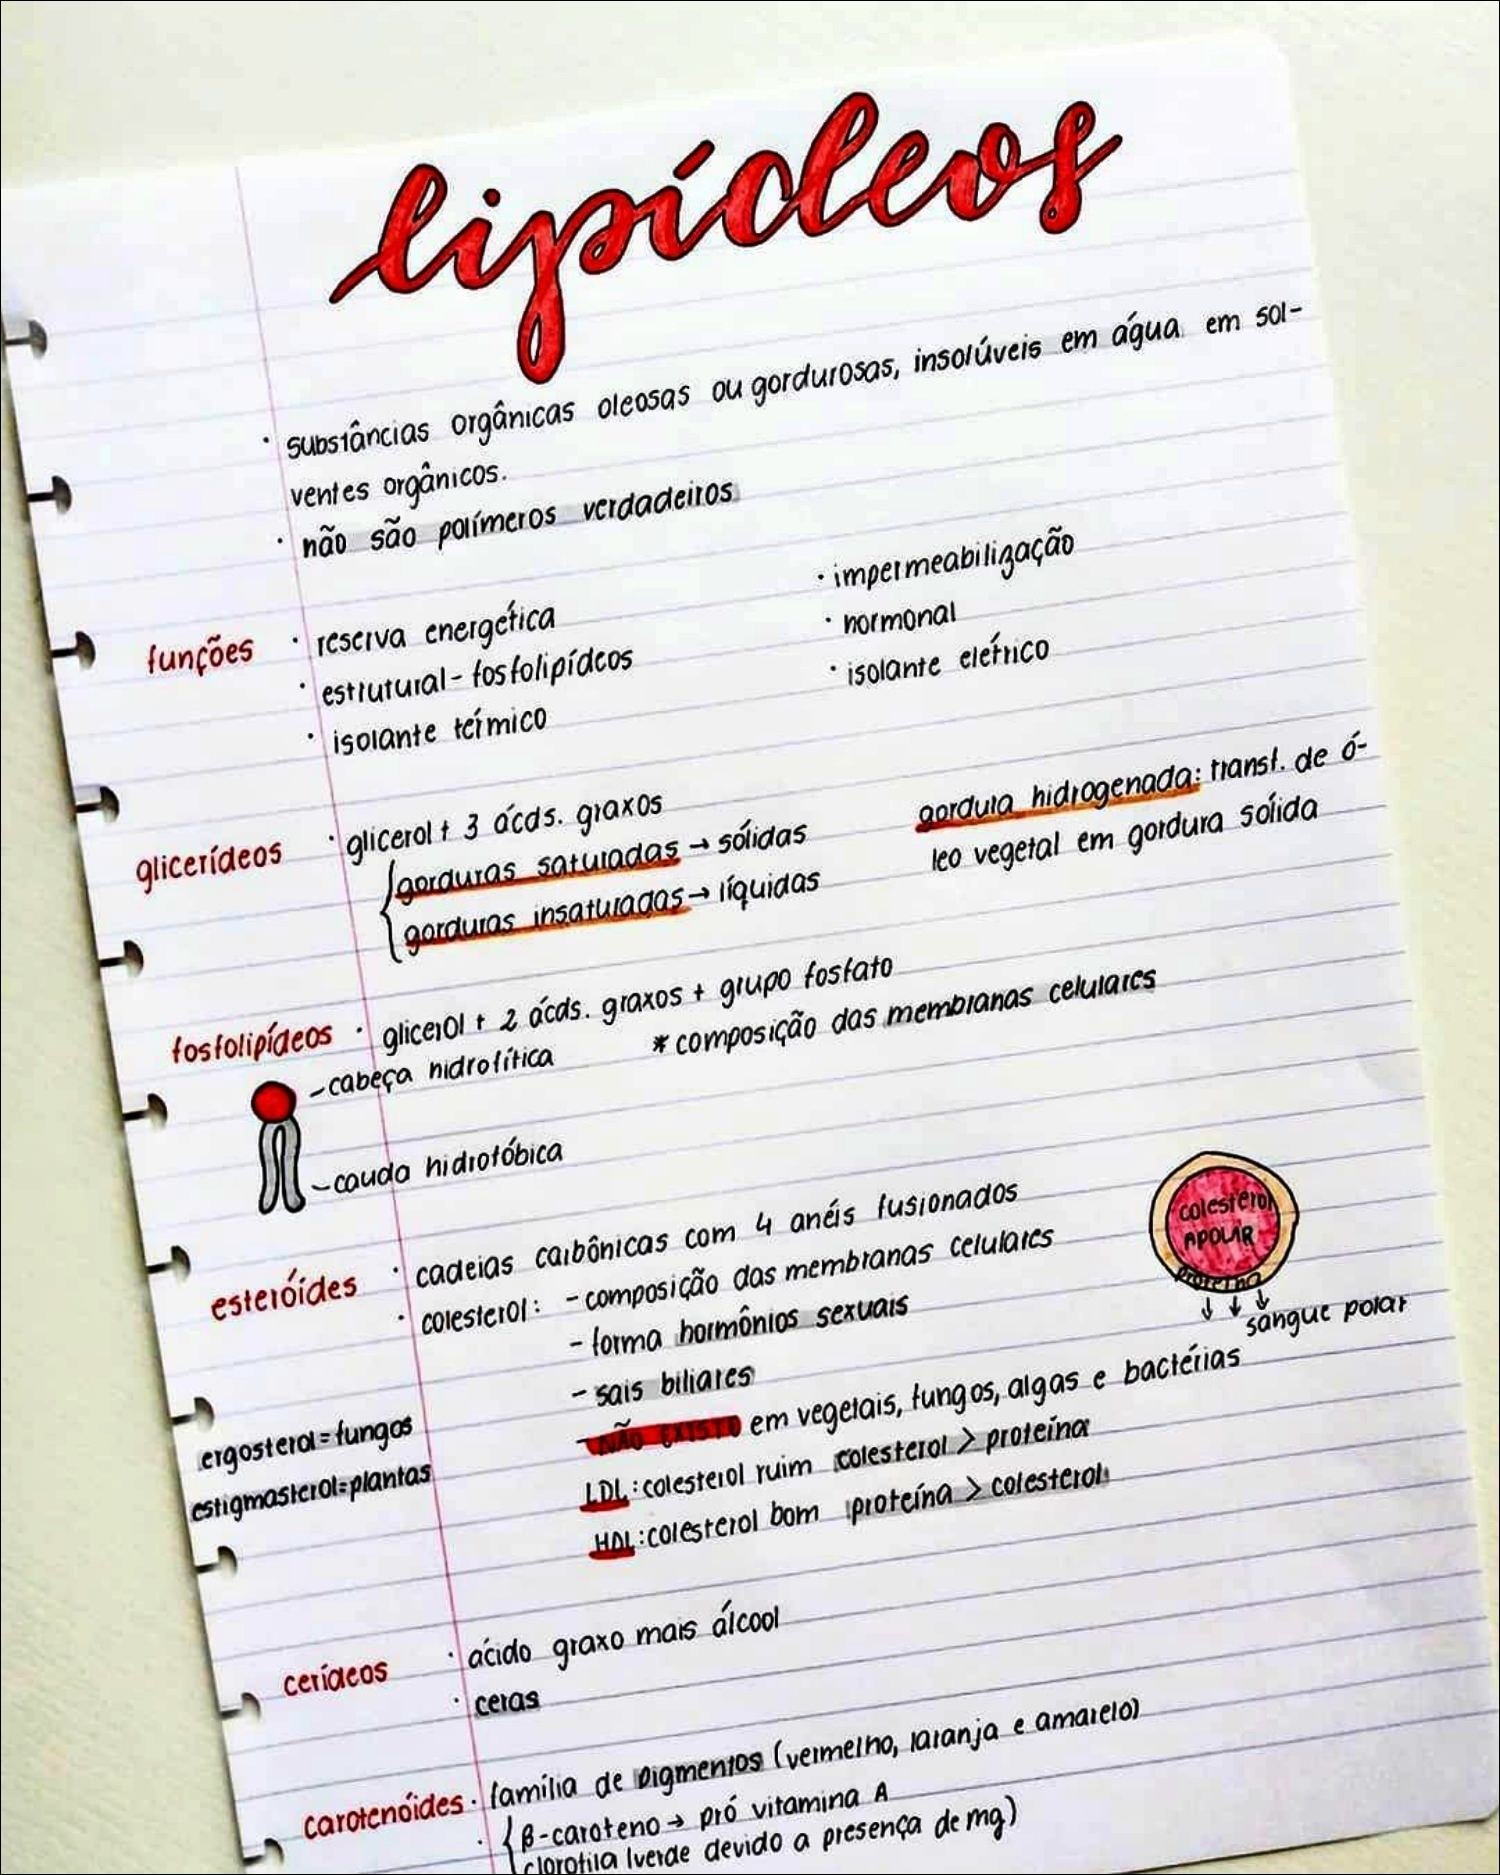 lipídeos
· substâncias orgânicas oleosas ou gordurosas, insolúveis em água em sol-
ventes orgânicos.
· não são polímeros verdadeiros
funções
· reserva energética
· estrutural - fosfolipídeos
· isolante térmico
· impermeabilização
· hormonal
· isolante elétrico
glicerídeos
· glicerol + 3 ácds. graxos
gorduras saturadas → sólidas
gorduras insaturadas → líquidas
gordura hidrogenada: transf. de ó-
leo vegetal em gordura sólida
fosfolipídeos · glicerol + 2 ácds. graxos + grupo fosfato
- cabeça hidrofítica
* composição das membranas celulares
- cauda hidrofóbica
esteróides
· cadeias carbônicas com 4 anéis fusionados
· colesterol: - composição das membranas celulares
- forma hormônios sexuais
- sais biliares
- NÃO EXISTE em vegetais, fungos, algas e bactérias
LDL: colesterol ruim colesterol > proteína
HDL: colesterol bom proteína > colesterol
colesterol
APOLAR
proteína
↓ ↓ ↓
sangue polar
ergosterol = fungos
estigmasterol = plantas
cerídeos
· ácido graxo mais álcool
· ceras
carotenóides · família de pigmentos (vermelho, laranja e amarelo)
· β-caroteno → pró vitamina A
clorofila (verde devido a presença de mg)